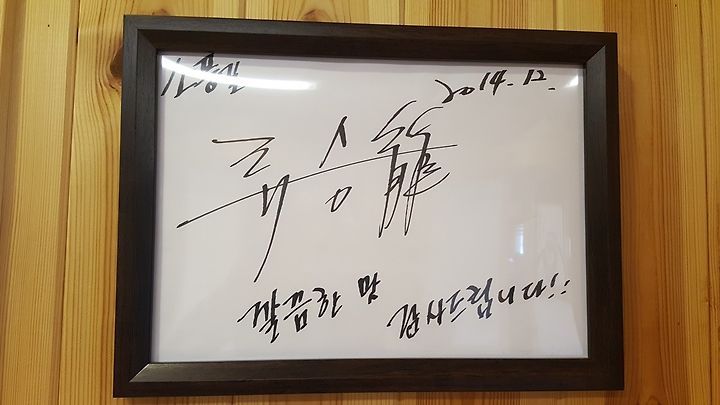 2014. 12.
류승龍
깔끔한 맛
감사드립니다!!